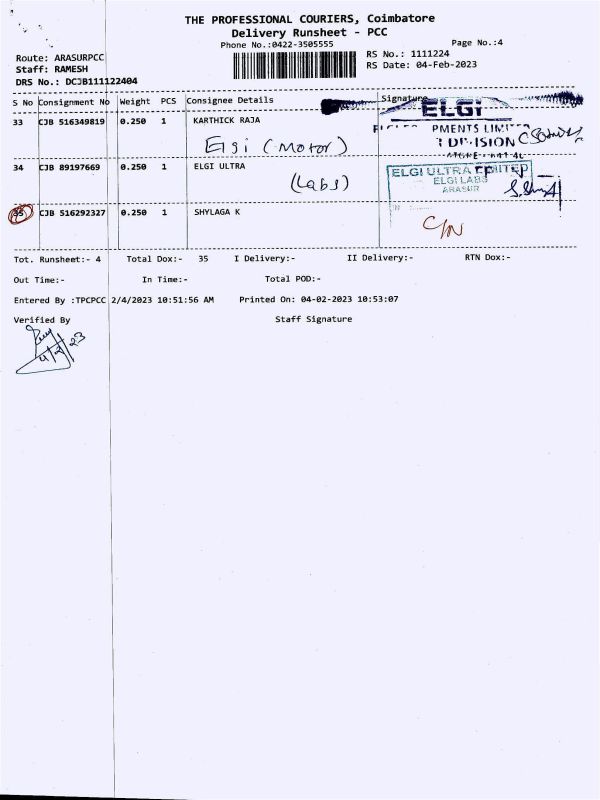 THE PROFESSIONAL COURIERS, Coimbatore
Delivery Runsheet - PCC
Phone No.:0422-3505555
Page No.:4
Route: ARASURPCC
RS No.: 1111224
Staff: RAMESH
RS Date: 04-Feb-2023
DRS No.: DCJB111122404
S No Consignment No Weight PCS Consignee Details Signature
33 CJB 516349819 0.250 1 KARTHICK RAJA
ELGi
PMENTS LIMIT
Elgi (Motor)
34 CJB 89197669 0.250 1 ELGI ULTRA
ELGI ULTRA LIMITED
(Labs)
ELGI LABS
ARASUR
35 CJB 516292327 0.250 1 SHYLAGA K
C/N
Tot. Runsheet:- 4 Total Dox:- 35 I Delivery:- II Delivery:- RTN Dox:-
Out Time:- In Time:- Total POD:-
Entered By :TPCPCC 2/4/2023 10:51:56 AM Printed On: 04-02-2023 10:53:07
Verified By Staff Signature
4/2/23